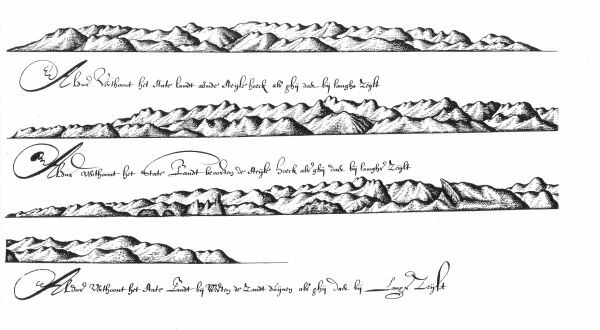 Aldus Verthoont het State landt aende steijle hoeck als ghij daer bij langhs Zeijlt
Aldus Verthoont het State Landt beoosten de steijle hoeck als ghij daer bij langhs Zeijlt
Aldus Verthoont het State Landt bij Westen de Zandt duijnen als ghij daer bij Langs Zeijlt